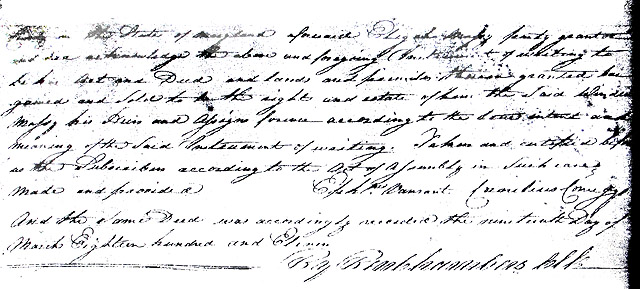 in the State of Maryland aforesaid Elijah Massy party grantor
and did acknowledge the above and foregoing Instrument of writing to
be his Act and Deed and lands and premises therein granted bar
gained and Sold to be the right and estate of him the Said
Massy his Heirs and Assigns forever according to the true intent and
meaning of the Said Instrument of writing. Taken and certified before
us the Subscribers according to the Act of Assembly in Such cases
made and provided Cornelius Comegys
And the Same Deed was accordingly recorded the nineteenth Day of
March Eighteen hundred and Eleven
Chambers Clk